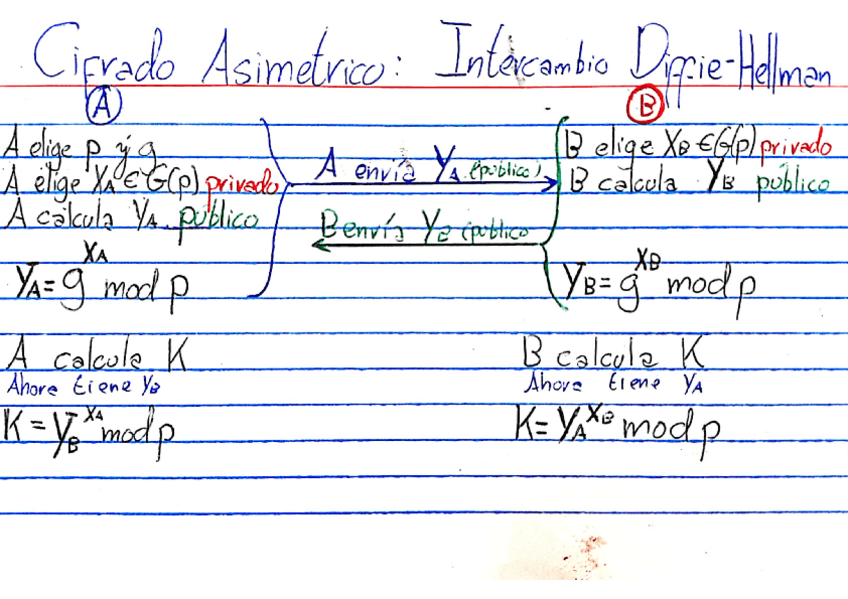 Cifrado Asimetrico: Intercambio Diffie-Hellman
A
A elige p y g
A elige XA ∈ G(p) privado
A calcula YA público
YA = g^XA mod p
A envía YA (público)
B envía YB (público
B
B elige XB ∈ G(p) privado
B calcula YB público
YB = g^XB mod p
A calcula K
Ahora tiene YB
K = YB^XA mod p
B calcula K
Ahora tiene YA
K = YA^XB mod p